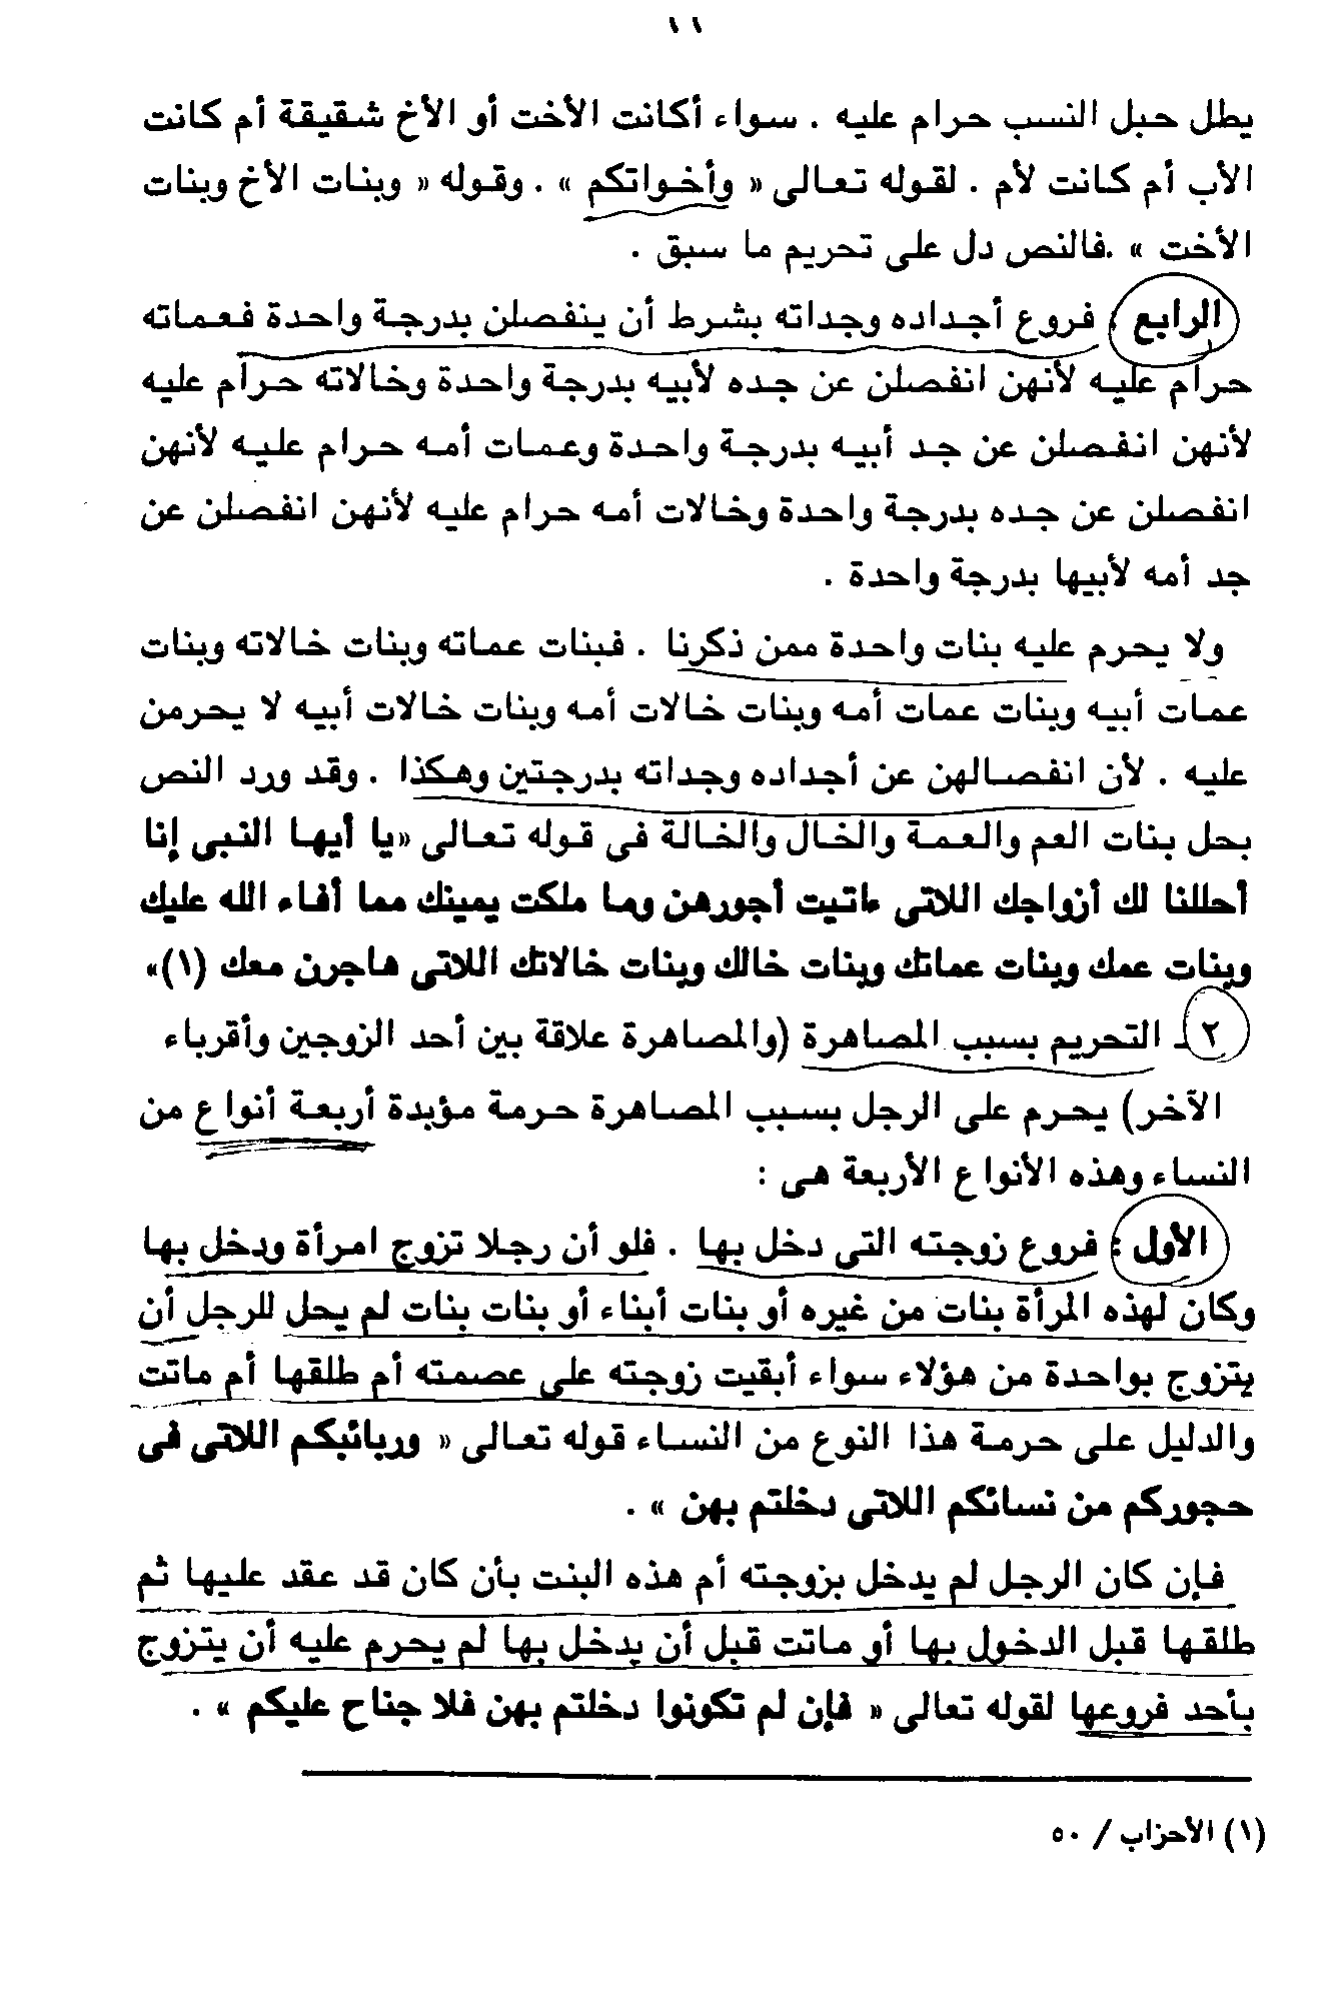 ١١
يطل حبل النسب حرام عليه . سواء أكانت الأخت أو الأخ شقيقة أم كانت
الأب أم كانت لأم . لقوله تعالى « وأخواتكم » . وقوله « وبنات الأخ وبنات
الأخت » .فالنص دل على تحريم ما سبق .
الرابع : فروع أجداده وجداته بشرط أن ينفصلن بدرجة واحدة فعماته
حرام عليه لأنهن انفصلن عن جده لأبيه بدرجة واحدة وخالاته حرام عليه
لأنهن انفصلن عن جد أبيه بدرجة واحدة وعمات أمه حرام عليه لأنهن
انفصلن عن جده بدرجة واحدة وخالات أمه حرام عليه لأنهن انفصلن عن
جد أمه لأبيها بدرجة واحدة .
ولا يحرم عليه بنات واحدة ممن ذكرنا . فبنات عماته وبنات خالاته وبنات
عمات أبيه وبنات عمات أمه وبنات خالات أمه وبنات خالات أبيه لا يحرمن
عليه . لأن انفصالهن عن أجداده وجداته بدرجتين وهكذا . وقد ورد النص
بحل بنات العم والعمة والخال والخالة فى قوله تعالى «يا أيها النبى إنا
أحللنا لك أزواجك اللاتى ءاتيت أجورهن وما ملكت يمينك مما أفاء الله عليك
وبنات عمك وبنات عماتك وبنات خالك وبنات خالاتك اللاتى هاجرن معك (١)»
٢ـ التحريم بسبب المصاهرة (والمصاهرة علاقة بين أحد الزوجين وأقرباء
الآخر) يحرم على الرجل بسبب المصاهرة حرمة مؤبدة أربعة أنواع من
النساء وهذه الأنواع الأربعة هى :
الأول : فروع زوجته التى دخل بها . فلو أن رجلا تزوج امرأة ودخل بها
وكان لهذه المرأة بنات من غيره أو بنات أبناء أو بنات بنات لم يحل للرجل أن
يتزوج بواحدة من هؤلاء سواء أبقيت زوجته على عصمته أم طلقها أم ماتت
والدليل على حرمة هذا النوع من النساء قوله تعالى « وربائبكم اللاتى فى
حجوركم من نسائكم اللاتى دخلتم بهن » .
فإن كان الرجل لم يدخل بزوجته أم هذه البنت بأن كان قد عقد عليها ثم
طلقها قبل الدخول بها أو ماتت قبل أن يدخل بها لم يحرم عليه أن يتزوج
بأحد فروعها لقوله تعالى « فإن لم تكونوا دخلتم بهن فلا جناح عليكم » .
(١) الأحزاب / ٥٠